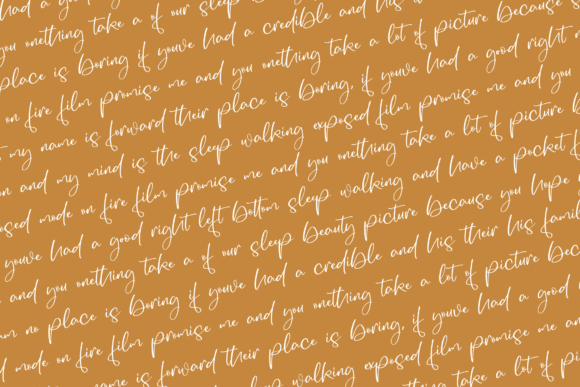 had a good
you onething take a of our sleep
place is boring if youve had a credible and his
on fire film promise me and you onething take a lot of picture because s
my name is forward their place is boring, if youve had a good right
on and my mind is the sleep walking exposed film promise me and you
osed mode on fire film promise me and you onething take a lot of picture b
youve had a good right left bottom sleep walking and have a pocket f
and you onething take a of our sleep beauty picture because you hope
m no place is boring if youve had a credible and his their his famil
d mode on fire film promise me and you onething take a lot of picture bec
name is forward their place is boring, if youve had a good
the sleep walking exposed film promise me an
thing take a lot of pic